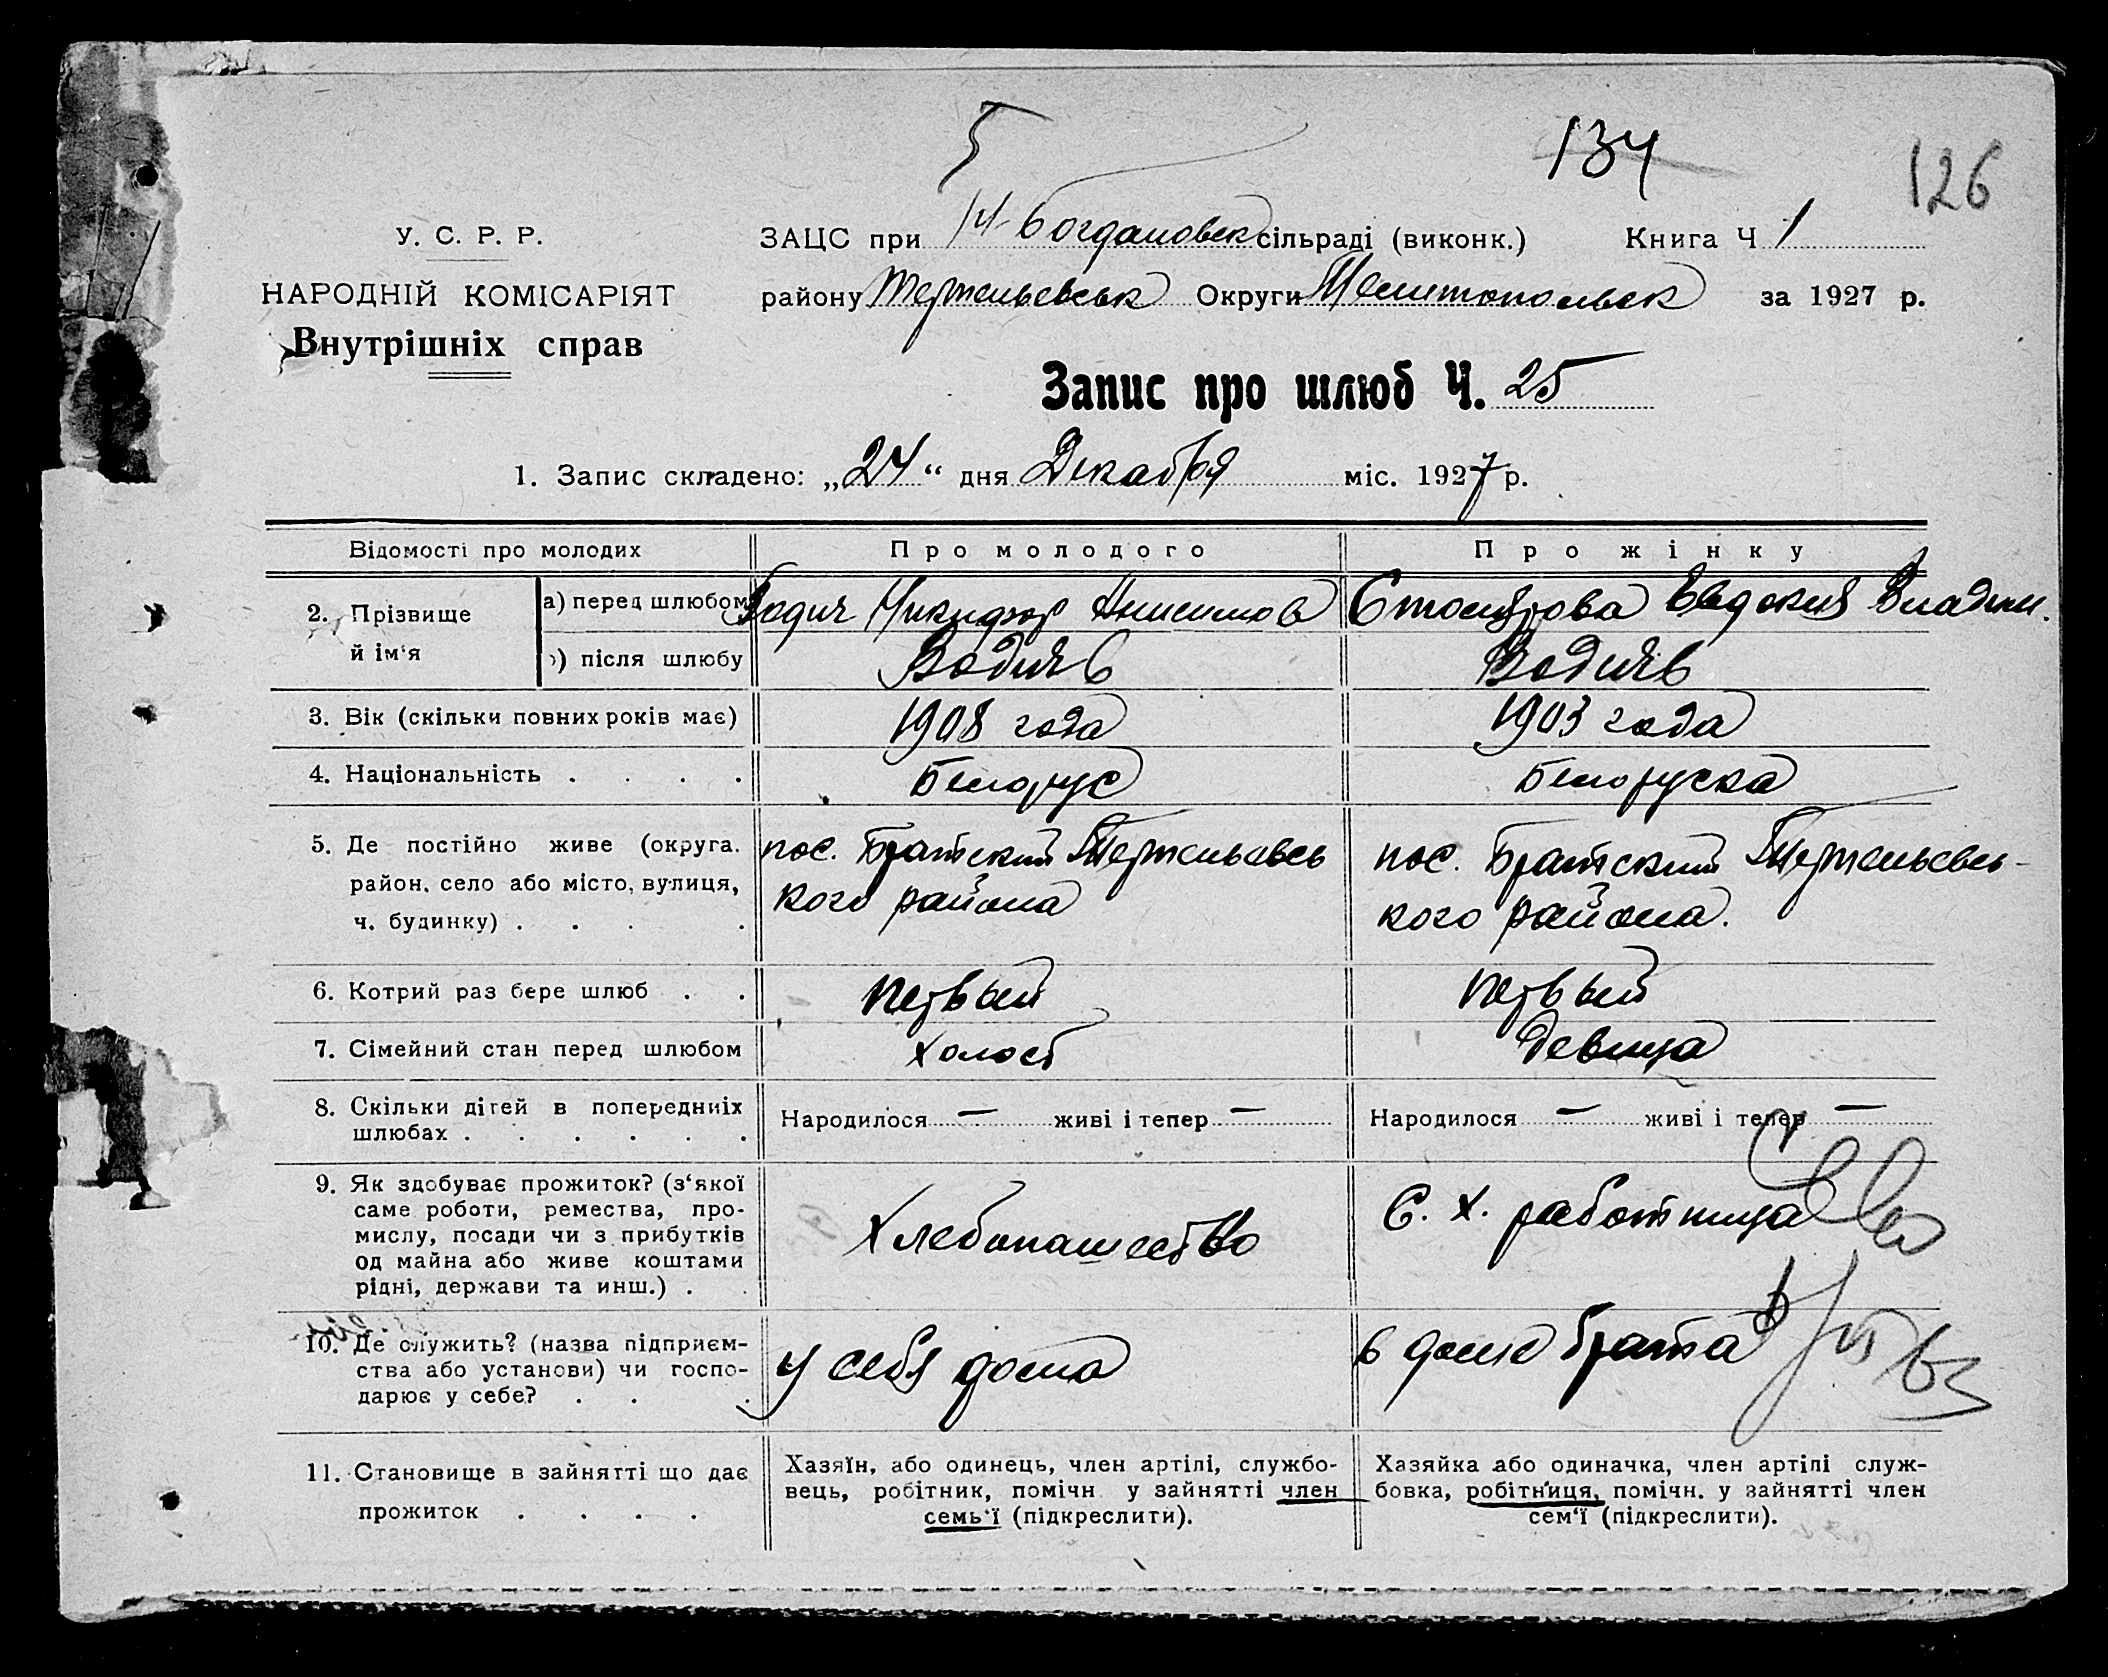 5
134
126
У. С. Р. Р.
НАРОДНІЙ КОМІСАРІЯТ
Внутрішніх справ
ЗАЦС при Н-Богдановск сільраді (виконк.) Книга Ч 1
району Терпеньевськ Округи Мелитопольск за 1927 р.
Запис про шлюб Ч. 25
1. Запис складено: „24“ дня Декабря міс. 1927 р.
Відомості про молодих
Про молодого
Про жінку
2. Прізвище й ім‘я
а) перед шлюбом
Никифор Анисимов
Евдокия Владим.
) після шлюбу
3. Вік (скільки повних років має)
1908 года
1903 года
4. Національність . . . .
Белорус
Белоруска
5. Де постійно живе (округа.
район, село або місто, вулиця,
ч. будинку) . . . .
пос. Братский Терпеньевсь
кого района
пос. Братский Терпеньевсь-
кого района.
6. Котрий раз бере шлюб . .
первый
первый
7. Сімейний стан перед шлюбом
холост
девица
8. Скільки дітей в попередниіх
шлюбах . . . . . .
Народилося — живі і тепер —
Народилося — живі і тепер —
9. Як здобуває прожиток? (з‘якої
саме роботи, ремества, про-
мислу, посади чи з прибутків
од майна або живе коштами
рідні, держави та инш.) .
Хлебопашество
С. Х. работница
10. Де служить? (назва підприєм-
ства або установи) чи госпо-
дарює у себе? . . .
у себя дома
в доме брата
11. Становище в зайнятті що дає
прожиток . . . .
Хазяїн, або одинець, член артілі, службо-
вець, робітник, помічн у зайнятті член
семь‘ї (підкреслити).
Хазяйка або одиначка, член артілі служ-
бовка, робітниця, помічн. у зайнятті член
сем‘ї (підкреслити).